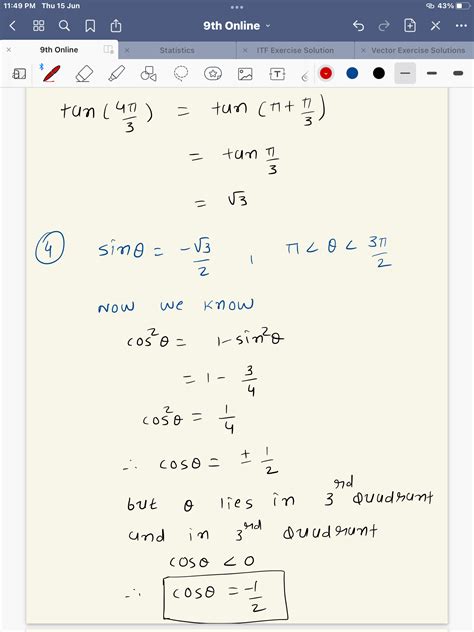 11:49 PM Thu 15 Jun 43%
9th Online
9th Online Statistics ITF Exercise Solution Vector Exercise Solutions
tan (4π/3) = tan (π + π/3)
= tan π/3
= √3
④ sinθ = -√3/2 , π < θ < 3π/2
Now we know
cos²θ = 1 - sin²θ
= 1 - 3/4
cos²θ = 1/4
∴ cosθ = ± 1/2
but θ lies in 3rd Quadrant
and in 3rd Quadrant
cosθ < 0
∴ cosθ = -1/2